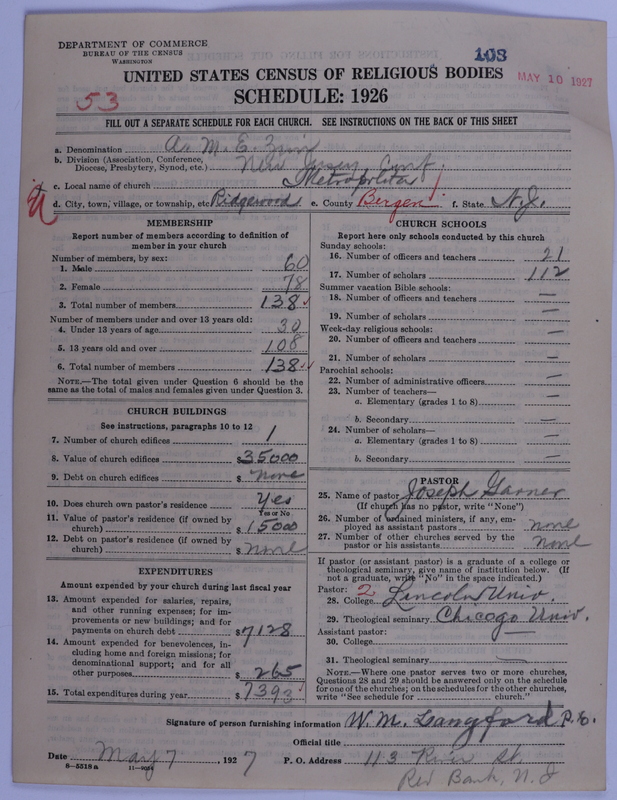 DEPARTMENT OF COMMERCE
BUREAU OF THE CENSUS
WASHINGTON
103
MAY 10 1927
UNITED STATES CENSUS OF RELIGIOUS BODIES
53
SCHEDULE: 1926
FILL OUT A SEPARATE SCHEDULE FOR EACH CHURCH. SEE INSTRUCTIONS ON THE BACK OF THIS SHEET
a. Denomination A. M. E. Zion
b. Division (Association, Conference,
Diocese, Presbytery, Synod, etc.) New Jersey Conf.
c. Local name of church Metropolitan
d. City, town, village, or township, etc. Ridgewood e. County Bergen f. State N.J.
MEMBERSHIP
Report number of members according to definition of
member in your church
Number of members, by sex:
1. Male 60
2. Female 78
3. Total number of members 138
Number of members under and over 13 years old:
4. Under 13 years of age 30
5. 13 years old and over 108
6. Total number of members 138
NOTE.—The total given under Question 6 should be the
same as the total of males and females given under Question 3.
CHURCH BUILDINGS
See instructions, paragraphs 10 to 12
7. Number of church edifices 1
8. Value of church edifices $ 35000
9. Debt on church edifices $ none
10. Does church own pastor's residence Yes
Yes or No
11. Value of pastor's residence (if owned by
church) $ 15000
12. Debt on pastor's residence (if owned by
church) $ none
EXPENDITURES
Amount expended by your church during last fiscal year
13. Amount expended for salaries, repairs,
and other running expenses; for im-
provements or new buildings; and for
payments on church debt $ 7128
14. Amount expended for benevolences, in-
cluding home and foreign missions; for
denominational support; and for all
other purposes $ 265
15. Total expenditures during year $ 7393
CHURCH SCHOOLS
Report here only schools conducted by this church
Sunday schools:
16. Number of officers and teachers 21
17. Number of scholars 112
Summer vacation Bible schools:
18. Number of officers and teachers —
19. Number of scholars —
Week-day religious schools:
20. Number of officers and teachers —
21. Number of scholars —
Parochial schools:
22. Number of administrative officers —
23. Number of teachers—
a. Elementary (grades 1 to 8) —
b. Secondary —
24. Number of scholars—
a. Elementary (grades 1 to 8) —
b. Secondary —
PASTOR
25. Name of pastor Joseph Garner
(If church has no pastor, write "None")
26. Number of ordained ministers, if any, em-
ployed as assistant pastors none
27. Number of other churches served by the
pastor or his assistants none
If pastor (or assistant pastor) is a graduate of a college or
theological seminary, give name of institution below. (If
not a graduate, write "No" in the space indicated.)
Pastor: 2
28. College Lincoln Univ.
29. Theological seminary Chicago Univ.
Assistant pastor:
30. College —
31. Theological seminary —
NOTE.—Where one pastor serves two or more churches,
Questions 28 and 29 should be answered only on the schedule
for one of the churches; on the schedules for the other churches,
write "See schedule for church."
Signature of person furnishing information W. M. Langford P.E.
Official title
Date May 7, 1927 P. O. Address 113 River St.
8—5318a 11—9054
Red Bank, N. J